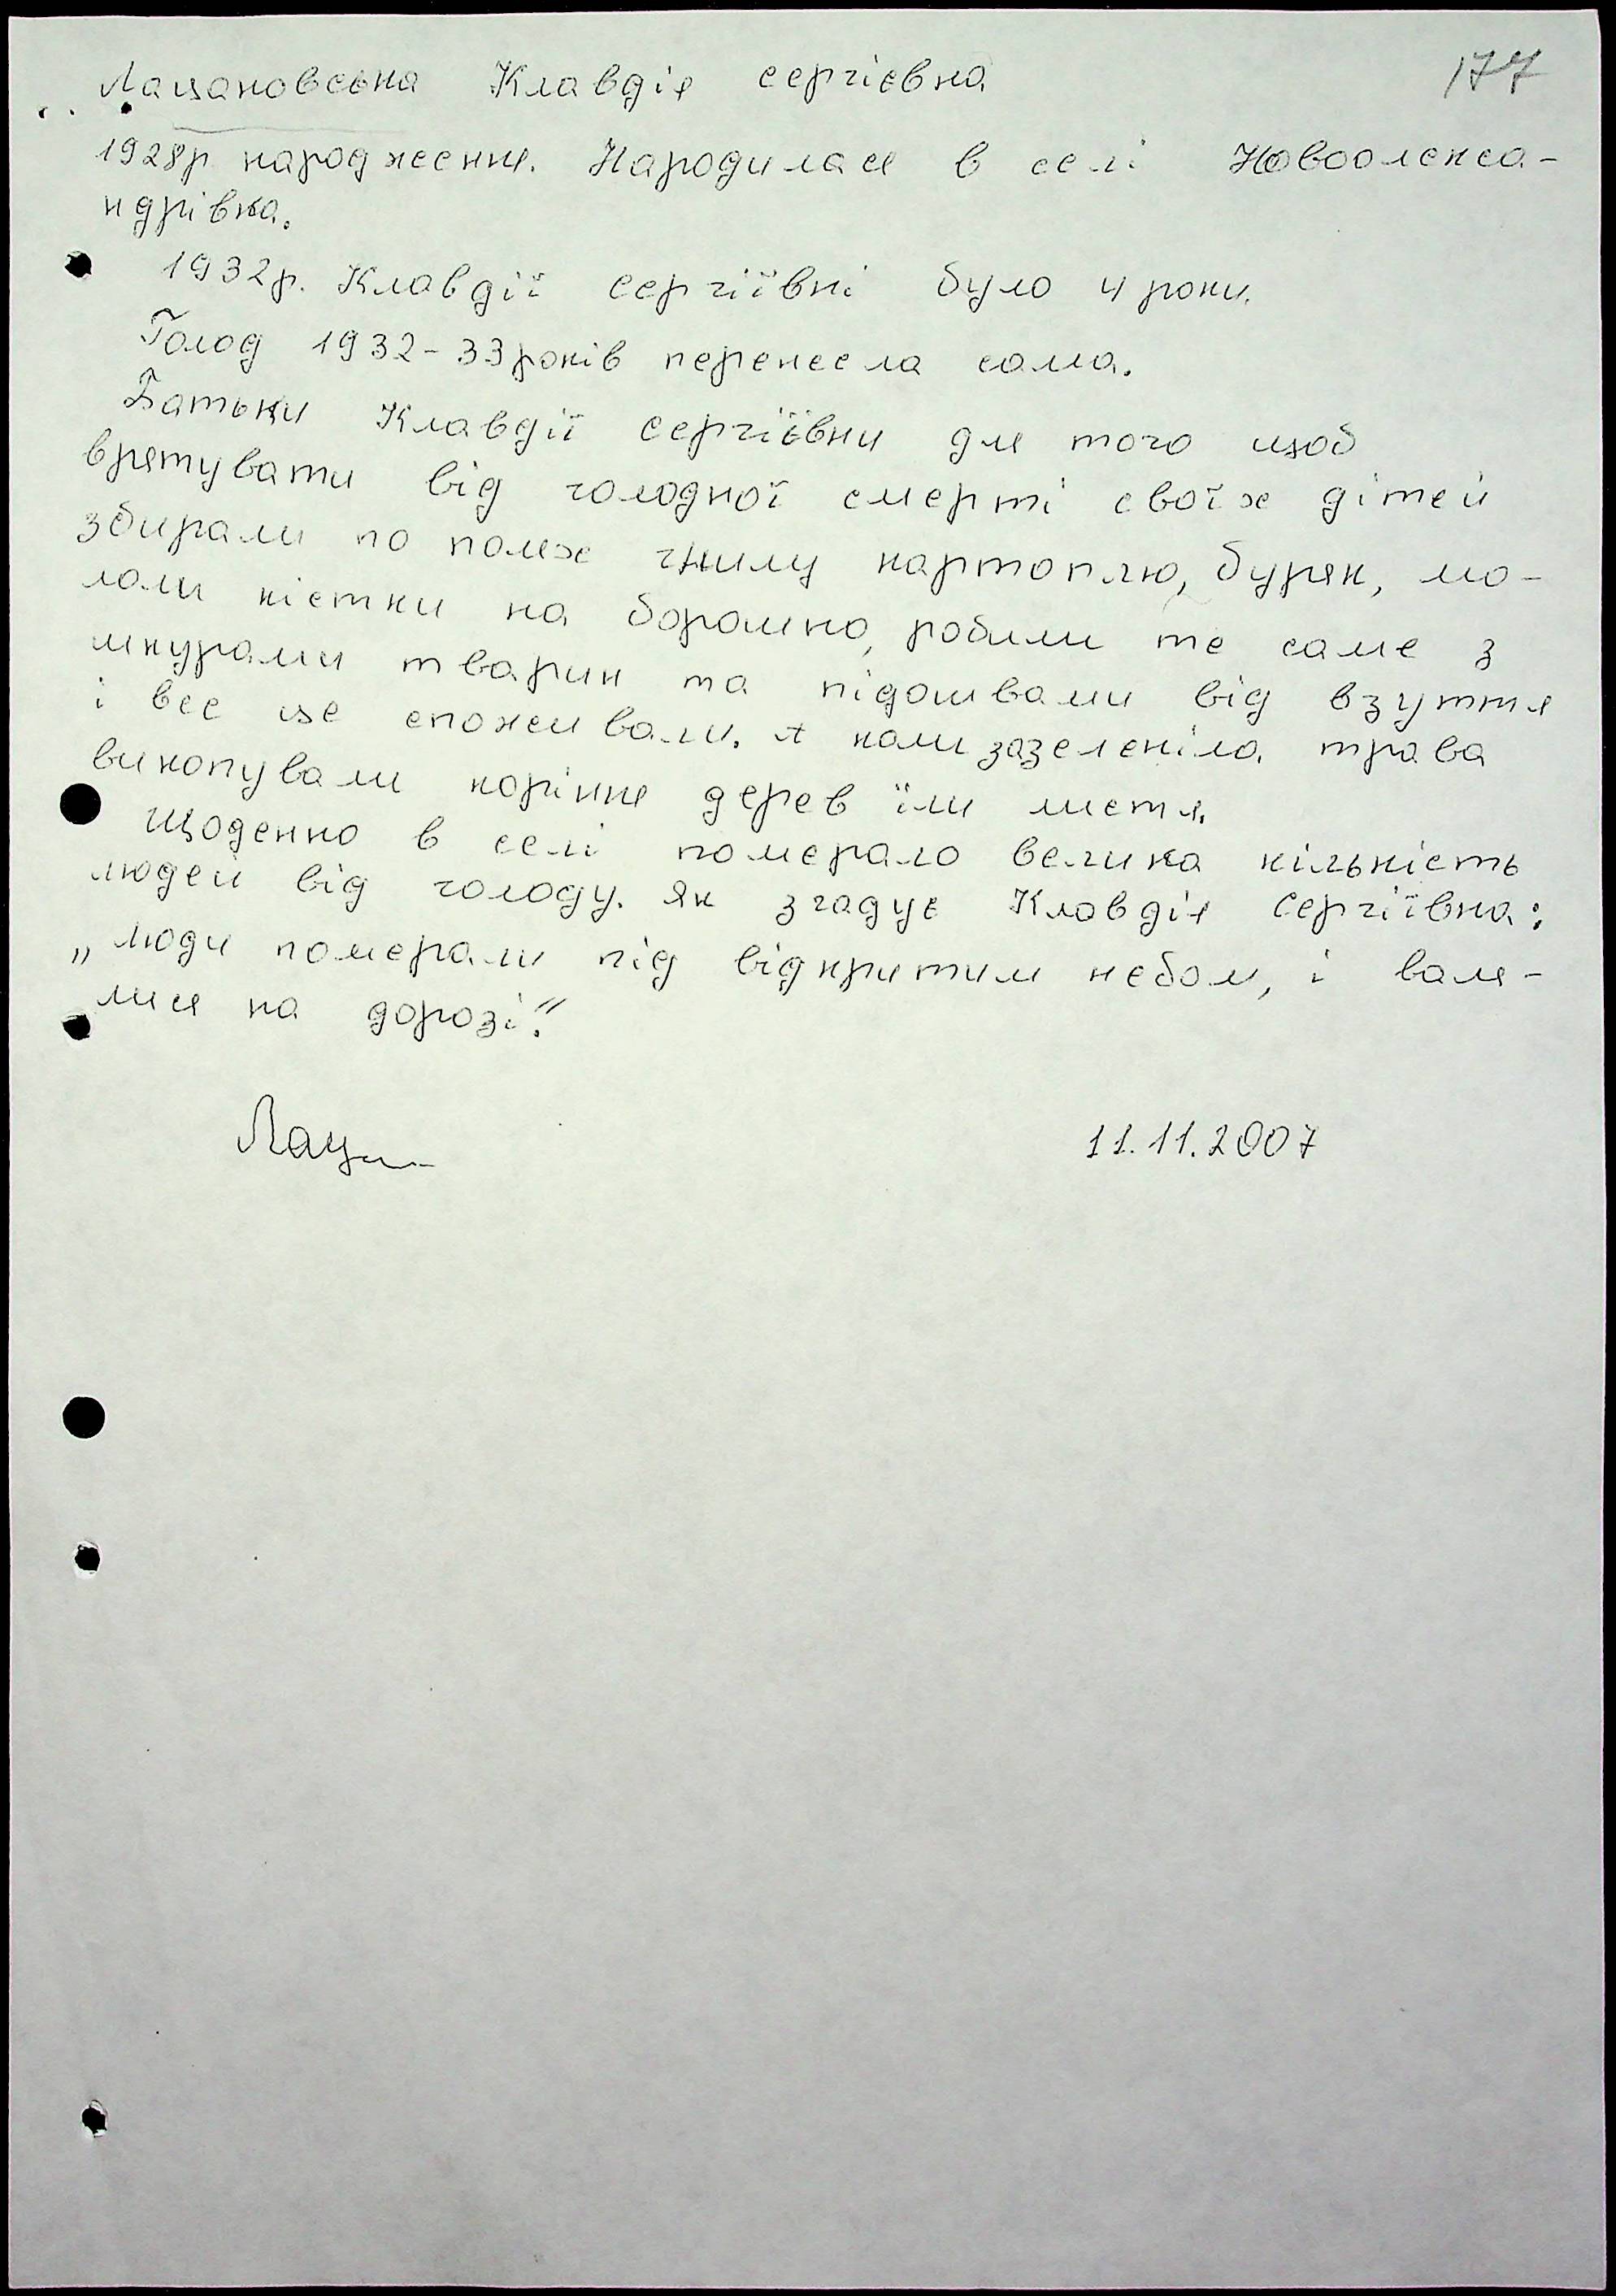 Лацановська Клавдія Сергієвна
177
1928р народження. Народилася в селі Новоолекса-
ндрівка.
1932р. Клавдії Сергіївні було 4 роки.
Голод 1932-33 років перенесла сама.
Батьки Клавдії Сергіївни для того щоб
врятувати від голодної смерті своїх дітей
збирали по полях гнилу картоплю, буряк, мо-
лоли кістки на борошно, робили те саме з
шкурами тварин та підошвами від взуття
і все це споживали. А коли зазеленіла трава
викопували коріння дерев їли листя.
Щоденно в селі померало велика кількість
людей від голоду. Як згадує Клавдія Сергіївна:
„Люди померали під відкритим небом, і валя-
лися на дорозі."
Лац
11.11.2007